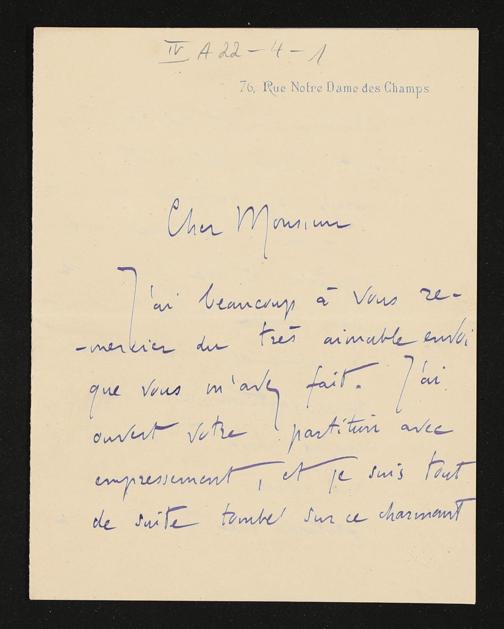 IV A 22-4-1
76, Rue Notre Dame des Champs
Cher Monsieur
J'ai beaucoup à vous re-
-mercier du très aimable envoi
que vous m'avez fait. J'ai
ouvert votre partition avec
empressement, et je suis tout
de suite tombé sur ce charmant